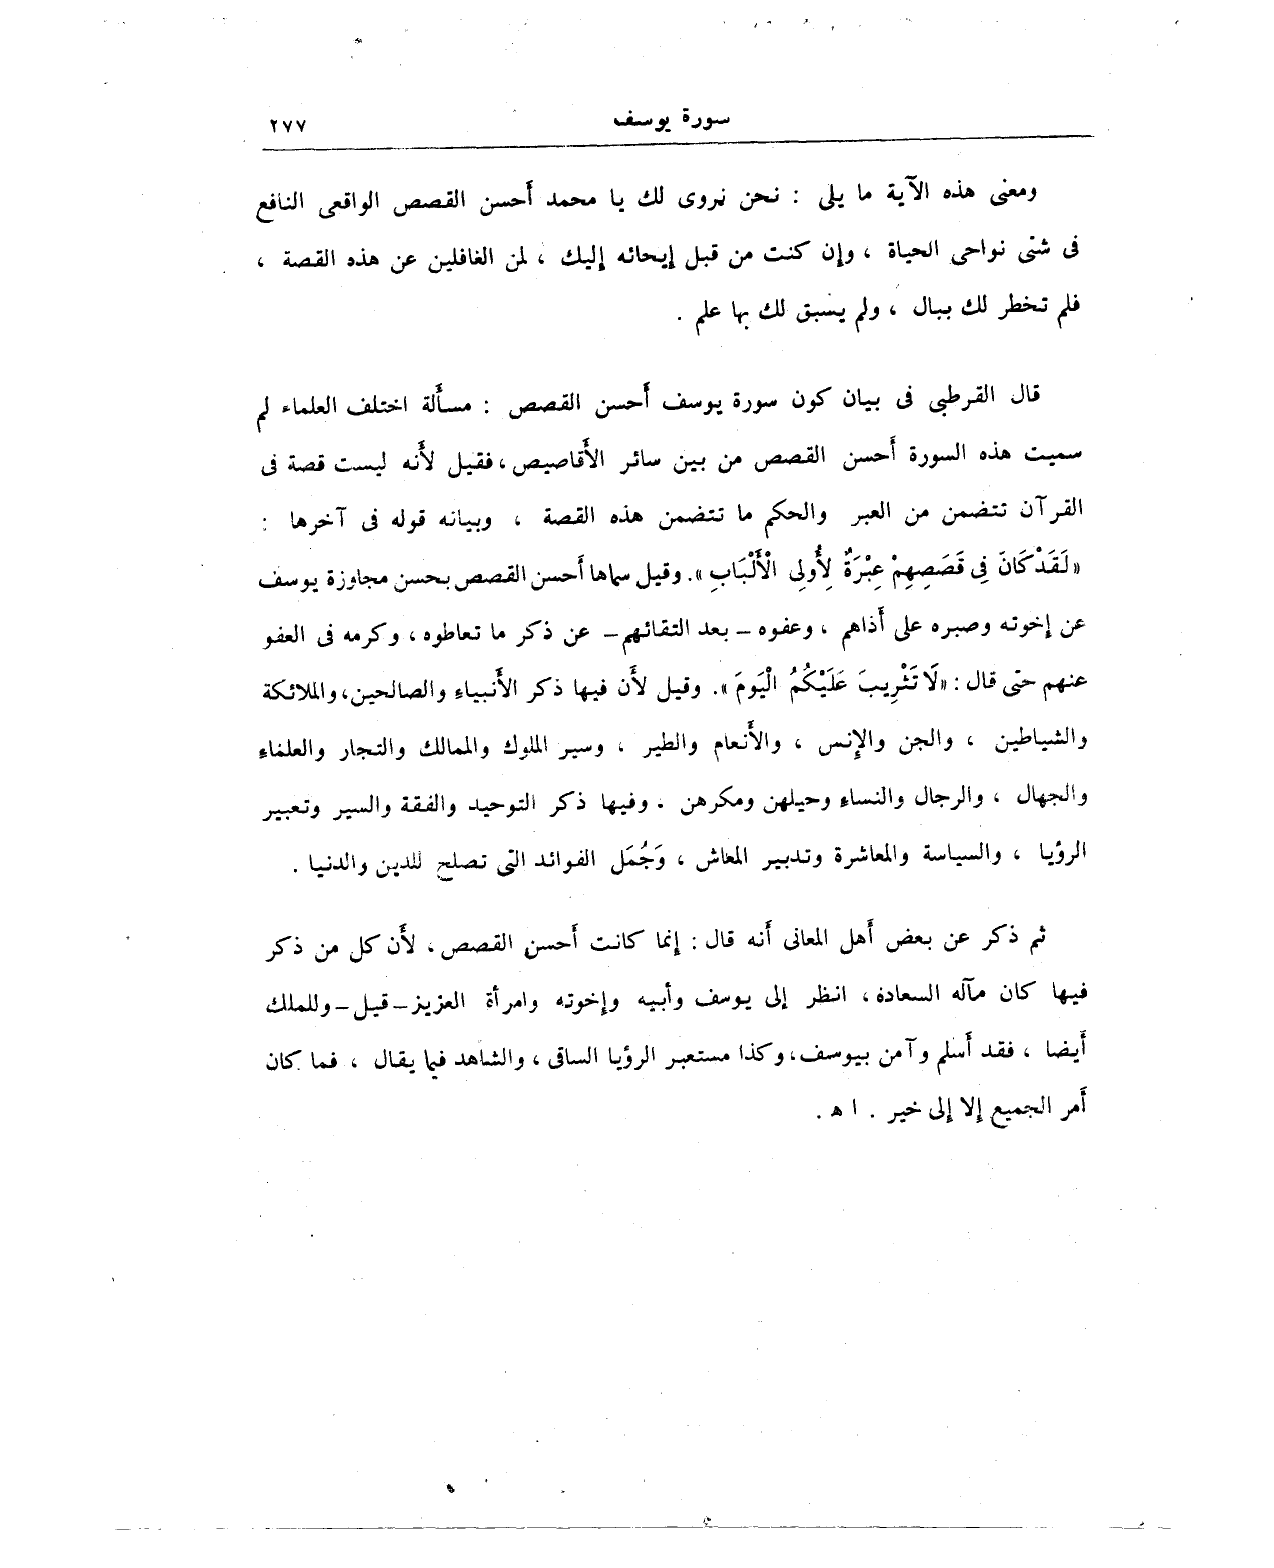 سورة يوسف ٢٧٧
ومعنى هذه الآية ما يلى : نحن نروى لك يا محمد أحسن القصص الواقعى النافع
فى شتى نواحى الحياة ، وإن كنت من قبل إيحائه إليك ، لمن الغافلين عن هذه القصة ،
فلم تخطر لك ببال ، ولم يسبق لك بها علم .
قال القرطبى فى بيان كون سورة يوسف أحسن القصص : مسألة اختلف العلماء لم
سميت هذه السورة أحسن القصص من بين سائر الأقاصيص ، فقيل لأنه ليست قصة فى
القرآن تتضمن من العبر والحكم ما تتضمن هذه القصة ، وبيانه قوله فى آخرها :
«لَقَدْ كَانَ فِى قَصَصِهِمْ عِبْرَةٌ لِأُولِى الْأَلْبَابِ». وقيل سماها أحسن القصص بحسن مجاوزة يوسف
عن إخوته وصبره على أذاهم ، وعفوه – بعد التقائهم – عن ذكر ما تعاطوه ، وكرمه فى العفو
عنهم حتى قال : «لَا تَثْرِيبَ عَلَيْكُمُ الْيَوْمَ». وقيل لأن فيها ذكر الأنبياء والصالحين، والملائكة
والشياطين ، والجن والإنس ، والأنعام والطير ، وسير الملوك والممالك والتجار والعلماء
والجهال ، والرجال والنساء وحيلهن ومكرهن . وفيها ذكر التوحيد والفقة والسير وتعبير
الرؤيا ، والسياسة والمعاشرة وتدبير المعاش ، وَجُمَل الفوائد التى تصلح للدين والدنيا .
ثم ذكر عن بعض أهل المعانى أنه قال : إنما كانت أحسن القصص ، لأن كل من ذكر
فيها كان مآله السعادة ، انظر إلى يوسف وأبيه وإخوته وامرأة العزيز – قيل – وللملك
أيضا ، فقد أسلم وآمن بيوسف، وكذا مستعبر الرؤيا الساقى ، والشاهد فيما يقال ، فما كان
أمر الجميع إلا إلى خير . ا هـ .